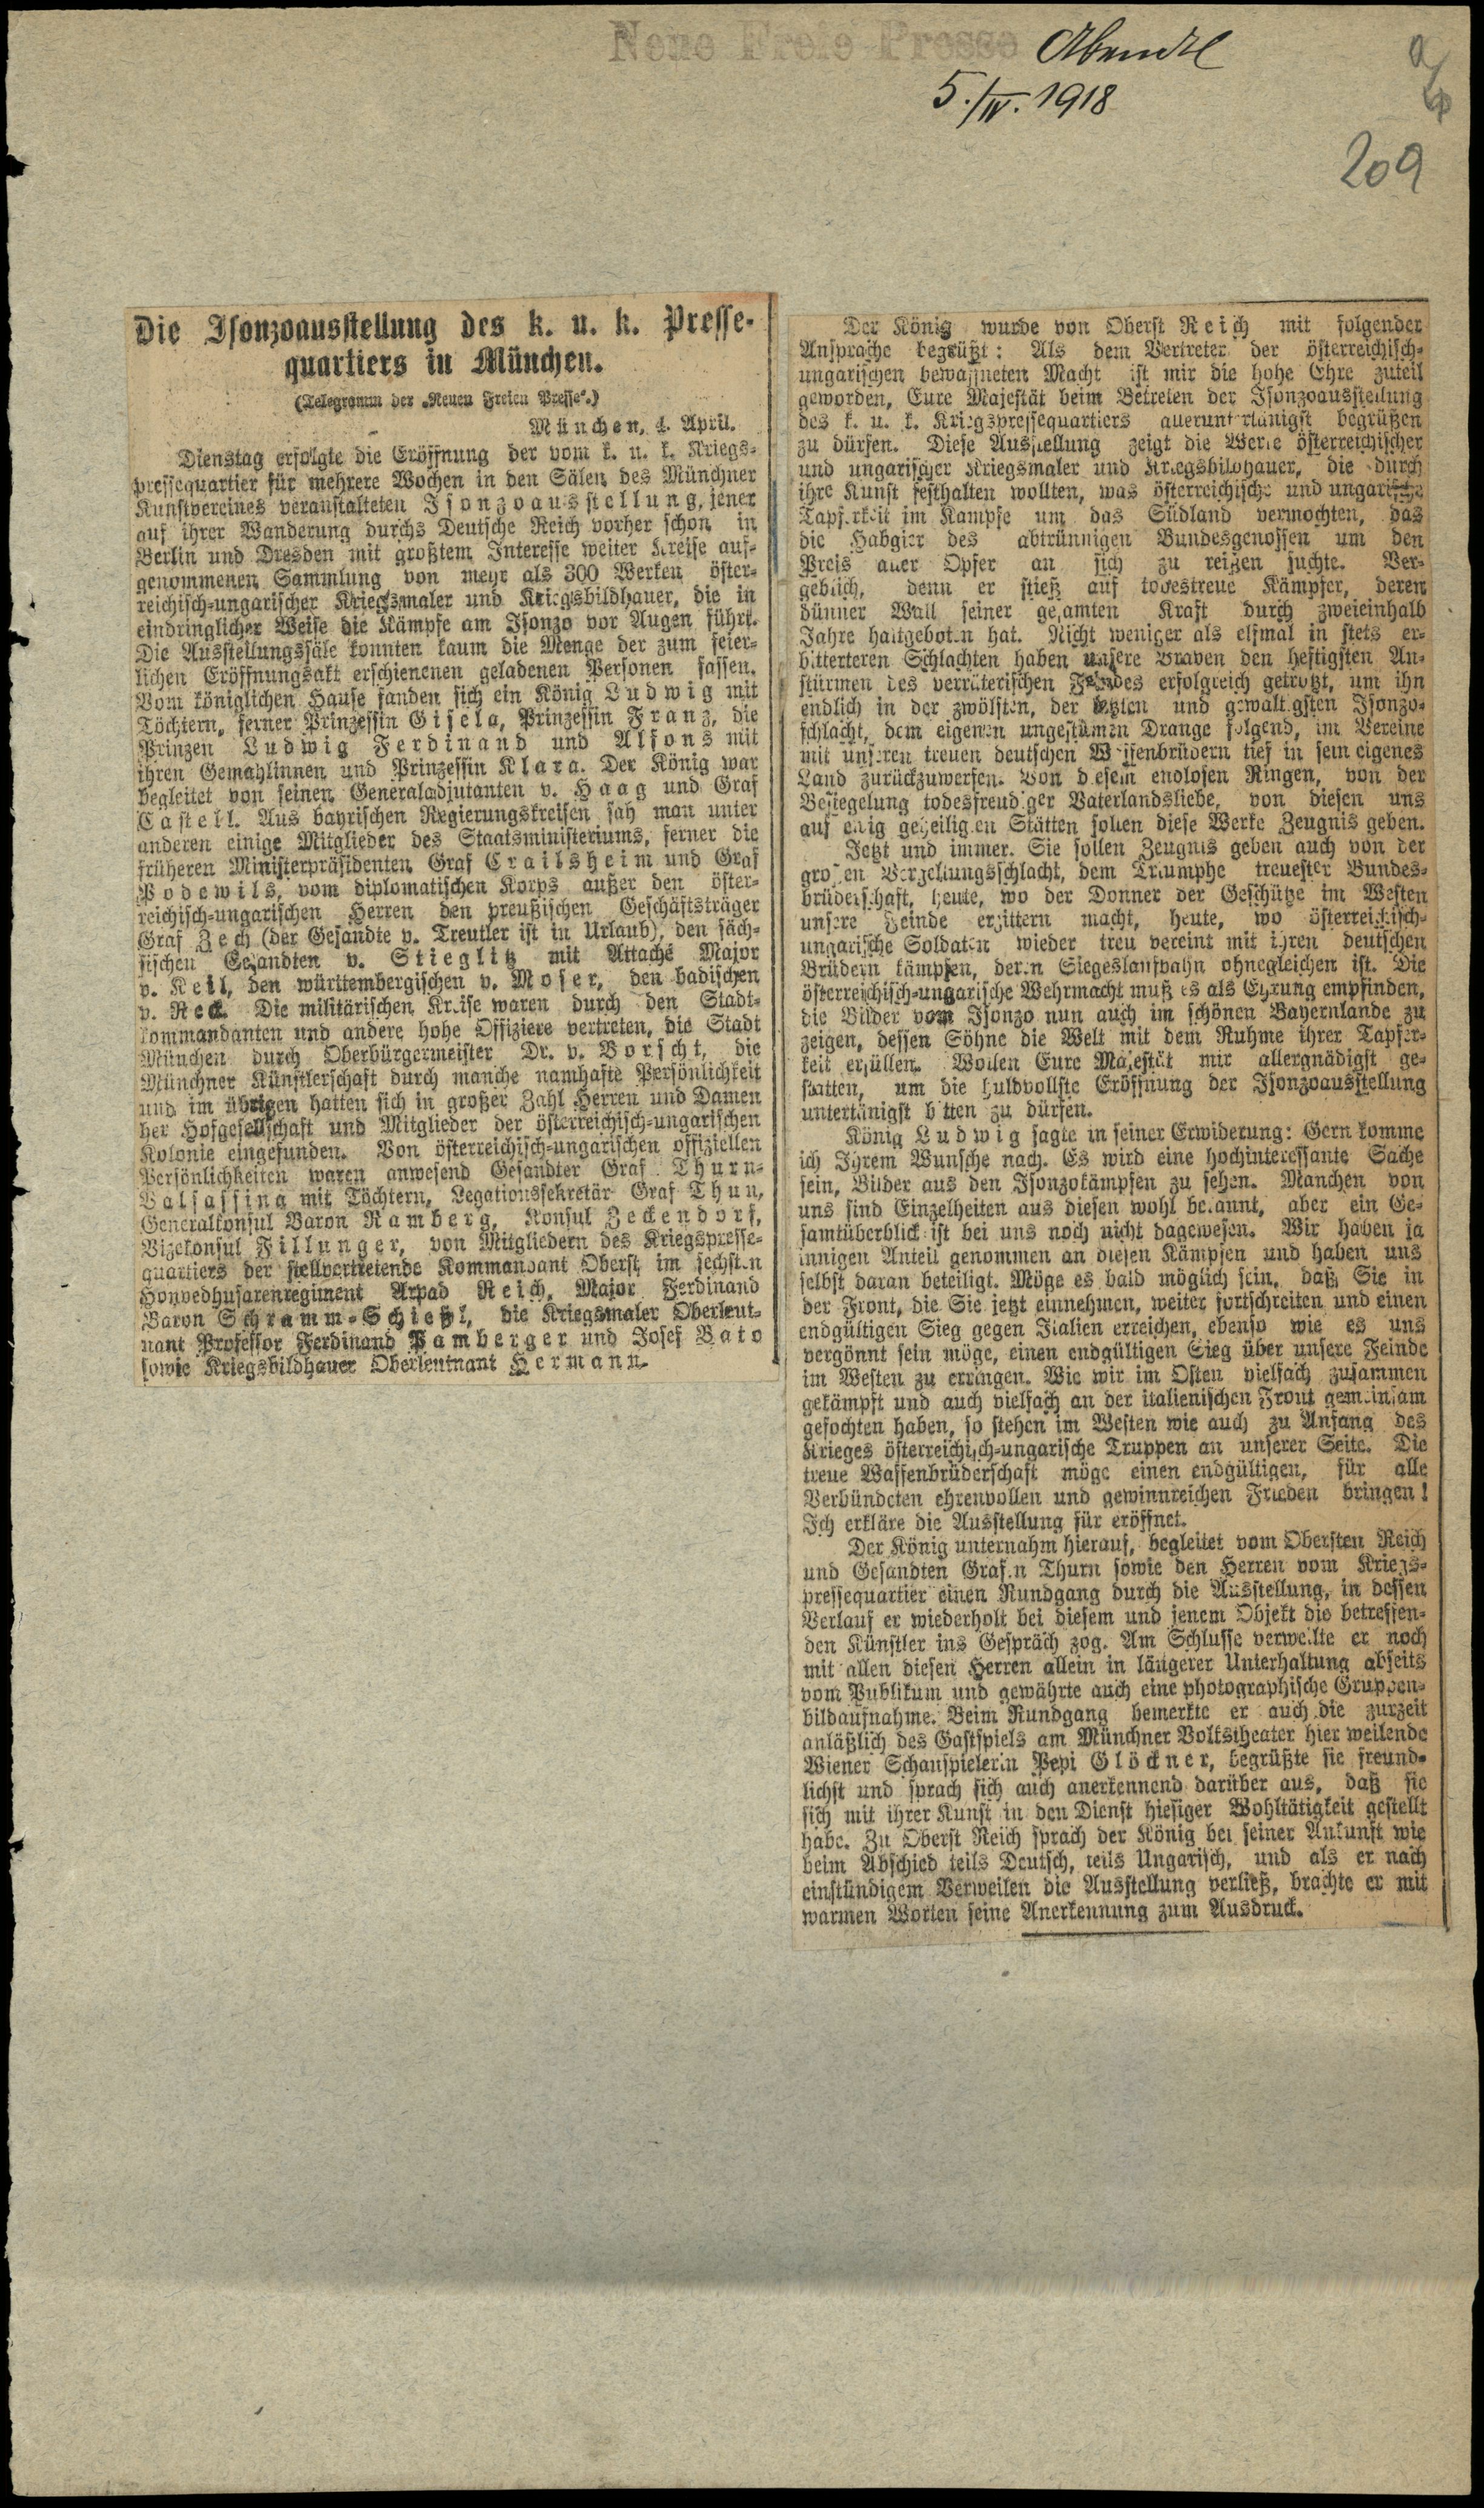 Neue Freie Presse
5./IV. 1918
209
Die Isonzoausstellung des k. u. k. Presse-
quartiers in München.
(Telegramm der „Neuen Freien Presse“.)
München, 4. April.
Dienstag erfolgte die Eröffnung der vom k. u. k. Kriegs-
pressequartier für mehrere Wochen in den Sälen des Münchner
Kunstvereines veranstalteten Isonzoausstellung, jener
auf ihrer Wanderung durchs Deutsche Reich vorher schon in
Berlin und Dresden mit großtem Interesse weiter Kreise auf-
genommenen Sammlung von mehr als 300 Werken öster-
reichisch-ungarischer Kriegsmaler und Kriegsbildhauer, die in
eindringlicher Weise die Kämpfe am Isonzo vor Augen führt.
Die Ausstellungssäle konnten kaum die Menge der zum feier-
lichen Eröffnungsakt erschienenen geladenen Personen fassen.
Vom königlichen Hause fanden sich ein König Ludwig mit
Töchtern, ferner Prinzessin Gisela, Prinzessin Franz, die
Prinzen Ludwig Ferdinand und Alfons mit
ihren Gemahlinnen und Prinzessin Klara. Der König war
begleitet von seinen Generaladjutanten v. Haag und Graf
Castell. Aus bayrischen Regierungskreisen sah man unter
anderen einige Mitglieder des Staatsministeriums, ferner die
früheren Ministerpräsidenten Graf Crailsheim und Graf
Podewils, vom diplomatischen Korps außer den öster-
reichisch-ungarischen Herren den preußischen Geschäftsträger
Graf Zech (der Gesandte v. Treutler ist in Urlaub), den säch-
sischen Gesandten v. Stieglitz mit Attaché Major
v. Keil, den württembergischen v. Moser, den badischen
v. Reck. Die militärischen Kreise waren durch den Stadt-
kommandanten und andere hohe Offiziere vertreten, die Stadt
München durch Oberbürgermeister Dr. v. Borscht, die
Münchner Künstlerschaft durch manche namhafte Persönlichkeit
und im übrigen hatten sich in großer Zahl Herren und Damen
her Hofgesellschaft und Mitglieder der österreichisch-ungarischen
Kolonie eingefunden. Von österreichisch-ungarischen offiziellen
Persönlichkeiten waren anwesend Gesandter Graf Thurn-
Valsassina mit Töchtern, Legationssekretär Graf Thun,
Generalkonsul Baron Ramberg, Konsul Zeckendorf,
Vizekonsul Fillunger, von Mitgliedern des Kriegspresse-
quartiers der stellvertretende Kommandant Oberst im sechsten
Honvedhusarenregiment Arpad Reich, Major Ferdinand
Baron Schramm-Schießl, die Kriegsmaler Oberleut-
nant Professor Ferdinand Pamberger und Josef Bato
sowie Kriegsbildhauer Oberleutnant Hermann.
Der König wurde von Oberst Reich mit folgender
Ansprache begrüßt: Als dem Vertreter der österreichisch-
ungarischen bewaffneten Macht ist mir die hohe Ehre zuteil
geworden, Eure Majestät beim Betreten der Isonzoausstellung
des k. u. k. Kriegspressequartiers alleruntertänigst begrüßen
zu dürfen. Diese Ausstellung zeigt die Werke österreichischer
und ungarischer Kriegsmaler und Kriegsbildhauer, die durch
ihre Kunst festhalten wollten, was österreichische und ungarische
Tapferkeit im Kampfe um das Südland vermochten, das
die Habgier des abtrünnigen Bundesgenossen um den
Preis aller Opfer an sich zu reißen suchte. Ver-
geblich, denn er stieß auf todestreue Kämpfer, deren
dünner Wall seiner gesamten Kraft durch zweieinhalb
Jahre haltgeboten hat. Nicht weniger als elfmal in stets er-
bitterteren Schlachten haben unsere Braven den heftigsten An-
stürmen des verräterischen Feindes erfolgreich getrotzt, um ihn
endlich in der zwölften, der letzten und gewaltigsten Isonzo-
schlacht, dem eigenen ungestümen Drange folgend, im Vereine
mit unseren treuen deutschen Waffenbrüdern tief in sein eigenes
Land zurückzuwerfen. Von diesem endlosen Ringen, von der
Besiegelung todesfreudiger Vaterlandsliebe, von diesen uns
auf ewig geheiligten Stätten sollen diese Werke Zeugnis geben.
Jetzt und immer. Sie sollen Zeugnis geben auch von der
großen Vergeltungsschlacht, dem Triumphe treuester Bundes-
brüderschaft, heute, wo der Donner der Geschütze im Westen
unsere Feinde erzittern macht, heute, wo österreichisch-
ungarische Soldaten wieder treu vereint mit ihren deutschen
Brüdern kämpfen, deren Siegeslaufbahn ohnegleichen ist. Die
österreichisch-ungarische Wehrmacht muß es als Ehrung empfinden,
die Bilder vom Isonzo nun auch im schönen Bayernlande zu
zeigen, dessen Söhne die Welt mit dem Ruhme ihrer Tapfer-
keit erfüllen. Wollen Eure Majestät mir allergnädigst ge-
statten, um die huldvollste Eröffnung der Isonzoausstellung
untertänigst bitten zu dürfen.
König Ludwig sagte in seiner Erwiderung: Gern komme
ich Ihrem Wunsche nach. Es wird eine hochinteressante Sache
sein, Bilder aus den Isonzokämpfen zu sehen. Manchen von
uns sind Einzelheiten aus diesen wohl bekannt, aber ein Ge-
samtüberblick ist bei uns noch nicht dagewesen. Wir haben ja
innigen Anteil genommen an diesen Kämpfen und haben uns
selbst daran beteiligt. Möge es bald möglich sein, daß Sie in
der Front, die Sie jetzt einnehmen, weiter fortschreiten und einen
endgültigen Sieg gegen Italien erreichen, ebenso wie es uns
vergönnt sein möge, einen endgültigen Sieg über unsere Feinde
im Westen zu erringen. Wie wir im Osten vielfach zusammen
gekämpft und auch vielfach an der italienischen Front gemeinsam
gefochten haben, so stehen im Westen wie auch zu Anfang des
Krieges österreichisch-ungarische Truppen an unserer Seite. Die
treue Waffenbrüderschaft möge einen endgültigen, für alle
Verbündeten ehrenvollen und gewinnreichen Frieden bringen!
Ich erkläre die Ausstellung für eröffnet.
Der König unternahm hierauf, begleitet vom Obersten Reich
und Gesandten Grafen Thurn sowie den Herren vom Kriegs-
pressequartier einen Rundgang durch die Ausstellung, in dessen
Verlauf er wiederholt bei diesem und jenem Objekt die betreffen-
den Künstler ins Gespräch zog. Am Schlusse verweilte er noch
mit allen diesen Herren allein in längerer Unterhaltung abseits
vom Publikum und gewährte auch eine photographische Gruppen-
bildaufnahme. Beim Rundgang bemerkte er auch die zurzeit
anläßlich des Gastspiels am Münchner Volkstheater hier weilende
Wiener Schauspielerin Pepi Glöckner, begrüßte sie freund-
lichst und sprach sich auch anerkennend darüber aus, daß sie
sich mit ihrer Kunst in den Dienst hiesiger Wohltätigkeit gestellt
habe. Zu Oberst Reich sprach der König bei seiner Ankunft wie
beim Abschied teils Deutsch, teils Ungarisch, und als er nach
einstündigem Verweilen die Ausstellung verließ, brachte er mit
warmen Worten seine Anerkennung zum Ausdruck.